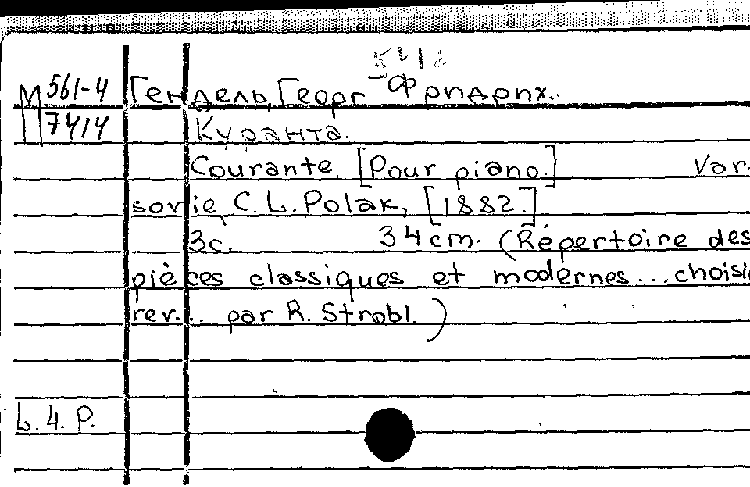 М 561-4 Гендель, Георг Фридрих.
7414 Куранта.
Courante. [Pour piano.] Var-
sovie, C. L. Polak, [1882.]
3c. 34cm. (Répertoire des
pièces classiques et modernes... choisi
rev... par R. Strobl.)
L. 4. P.